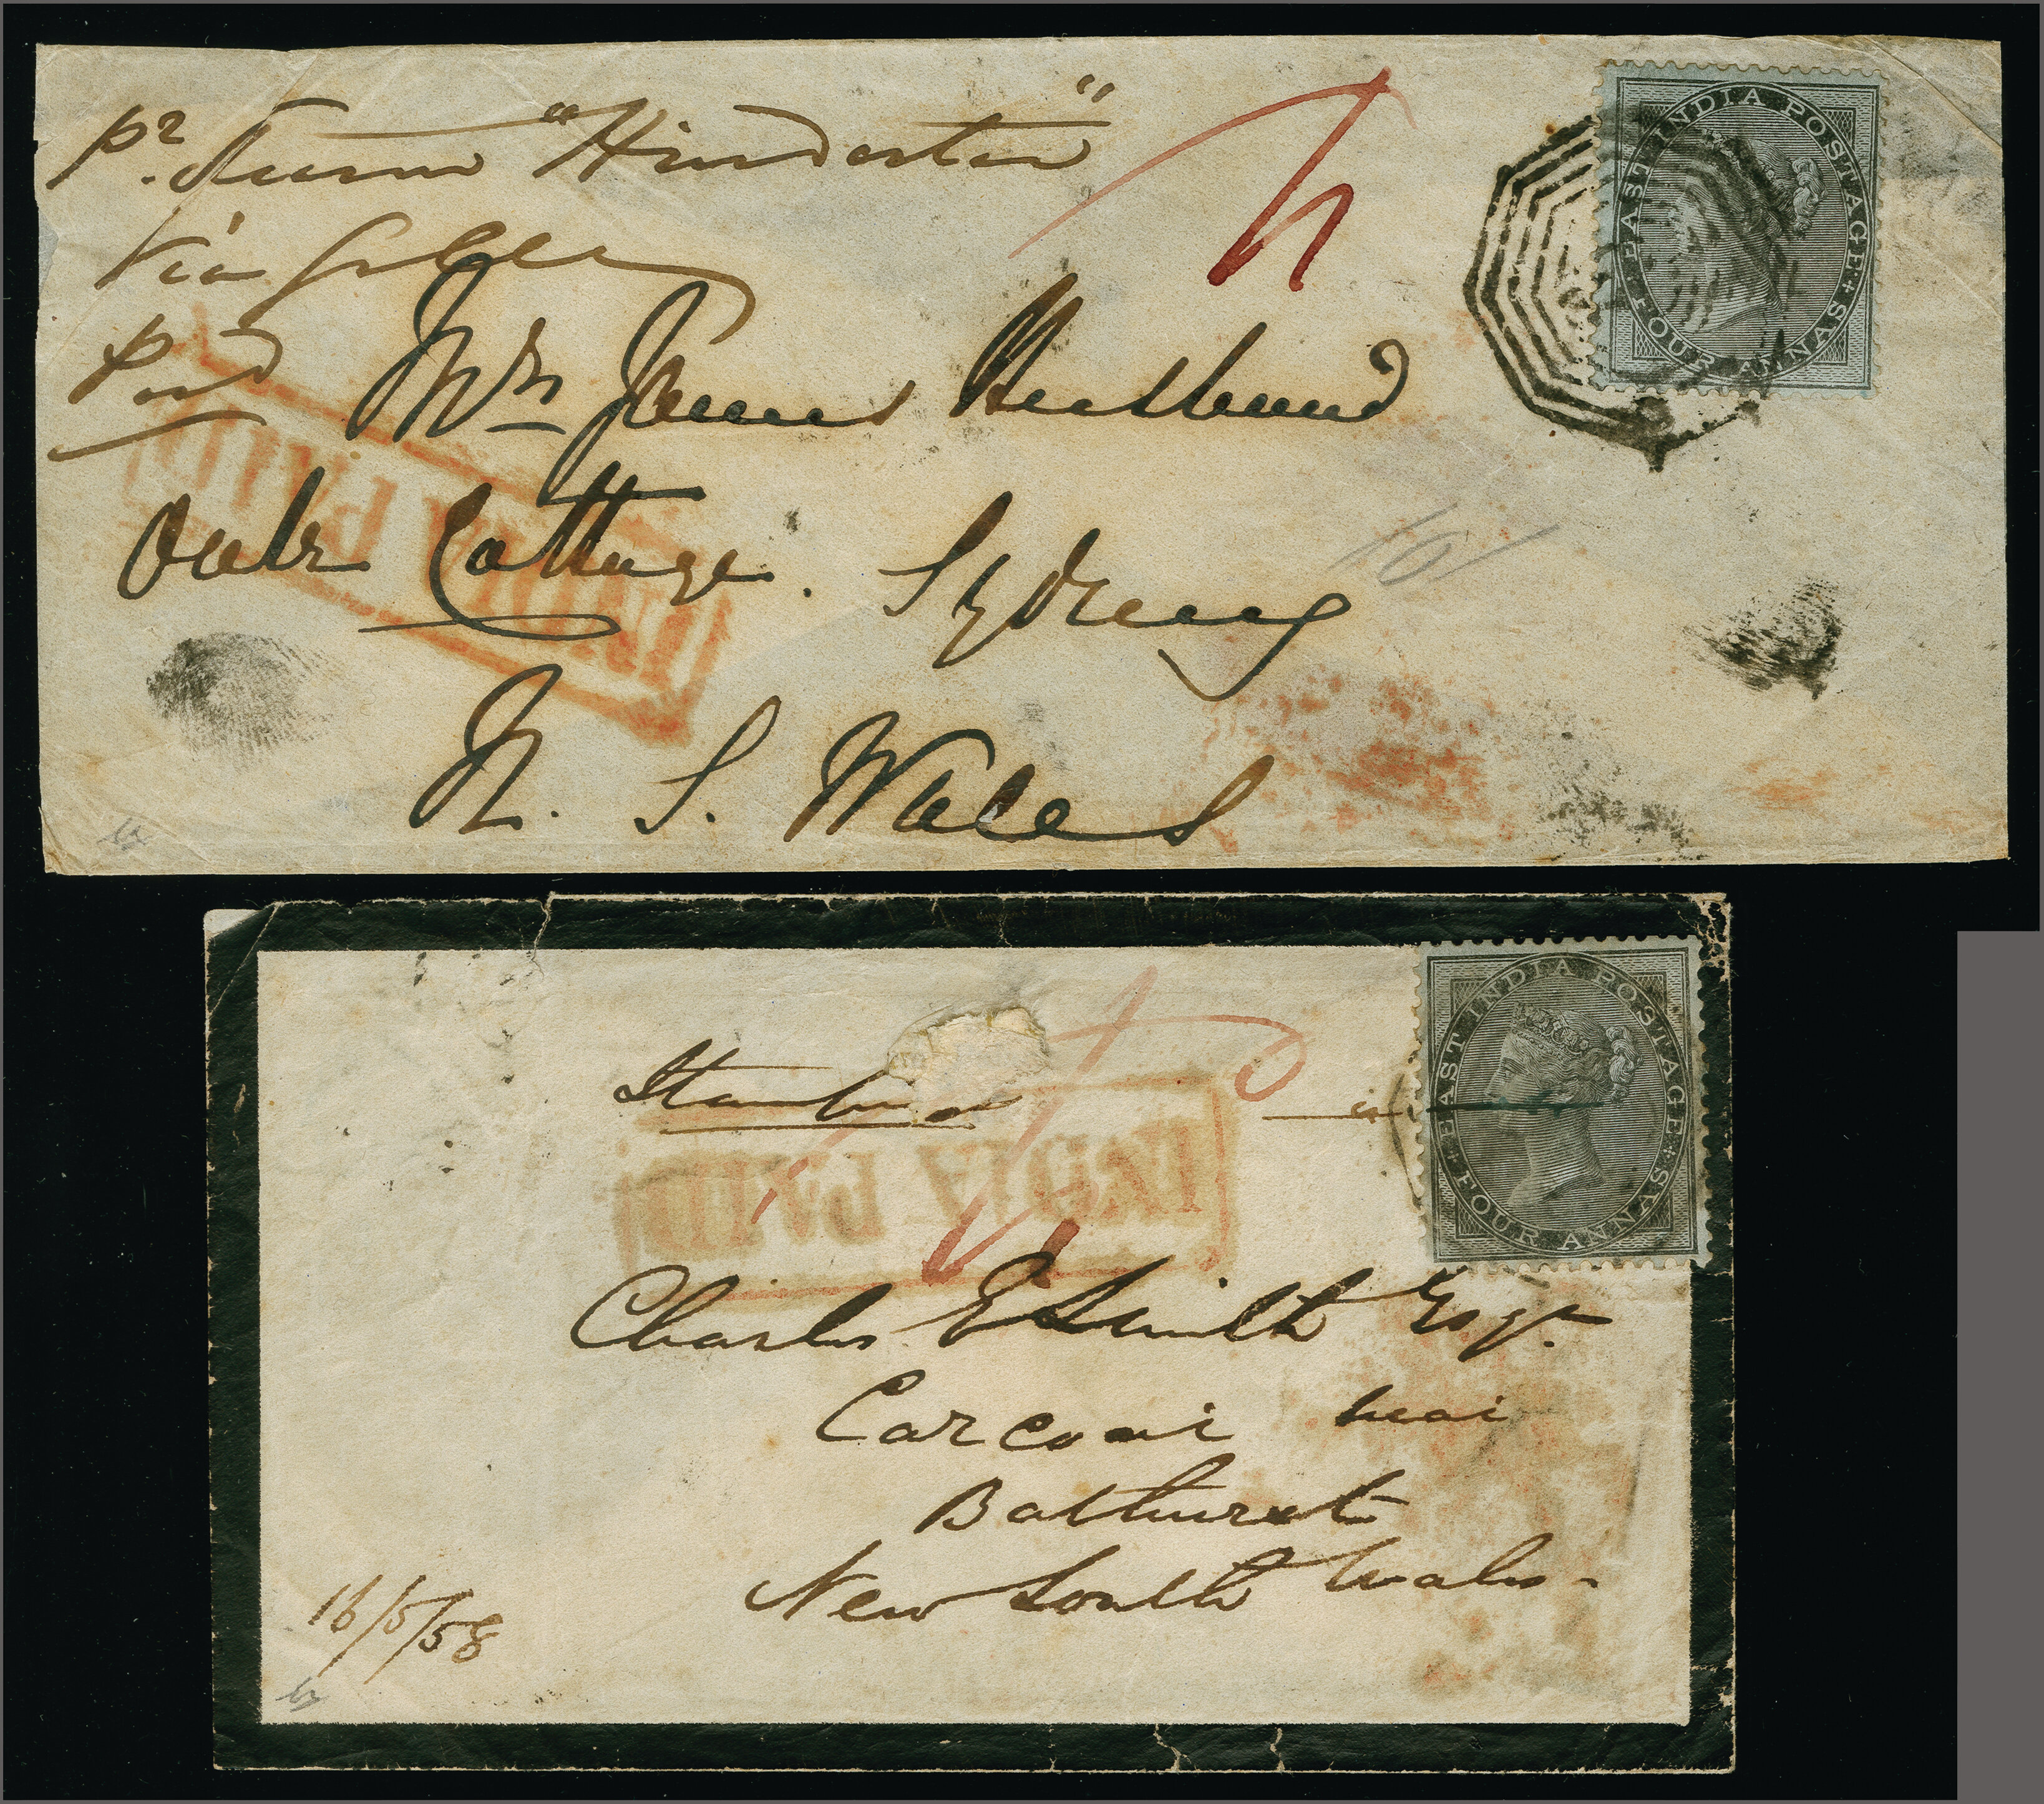 pr. Steamer "Hindostan"
Via Galle
Paid
EAST INDIA POSTAGE
FOUR ANNAS
INDIA PAID
Mr James Husband
Oak Cottage. Sydney
N. S. Wales
EAST INDIA POSTAGE
FOUR ANNAS
Stamped
INDIA PAID
Charles E Smith Esqr.
Carcoar near
Bathurst
New South Wales
16/5/58